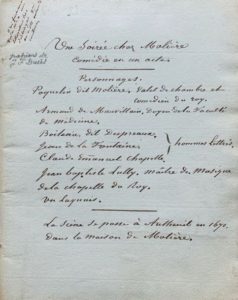 Une Soirée chez Molière
Comédie en un acte.
Personnages.
Poquelin dit Molière, Valet de chambre et
comédien du roy.
Armand de Mauvillain, Doyen de la Faculté
de médecine.
Boileau, dit Despreaux.
Jean de la Fontaine.
Claude Emanuel Chapelle.
hommes lettrés.
Jean baptiste Lully, maître de Musique
de la chapelle du Roy.
Un laquais.
La scène se passe à Autheuil en 1671,
dans la maison de Molière.